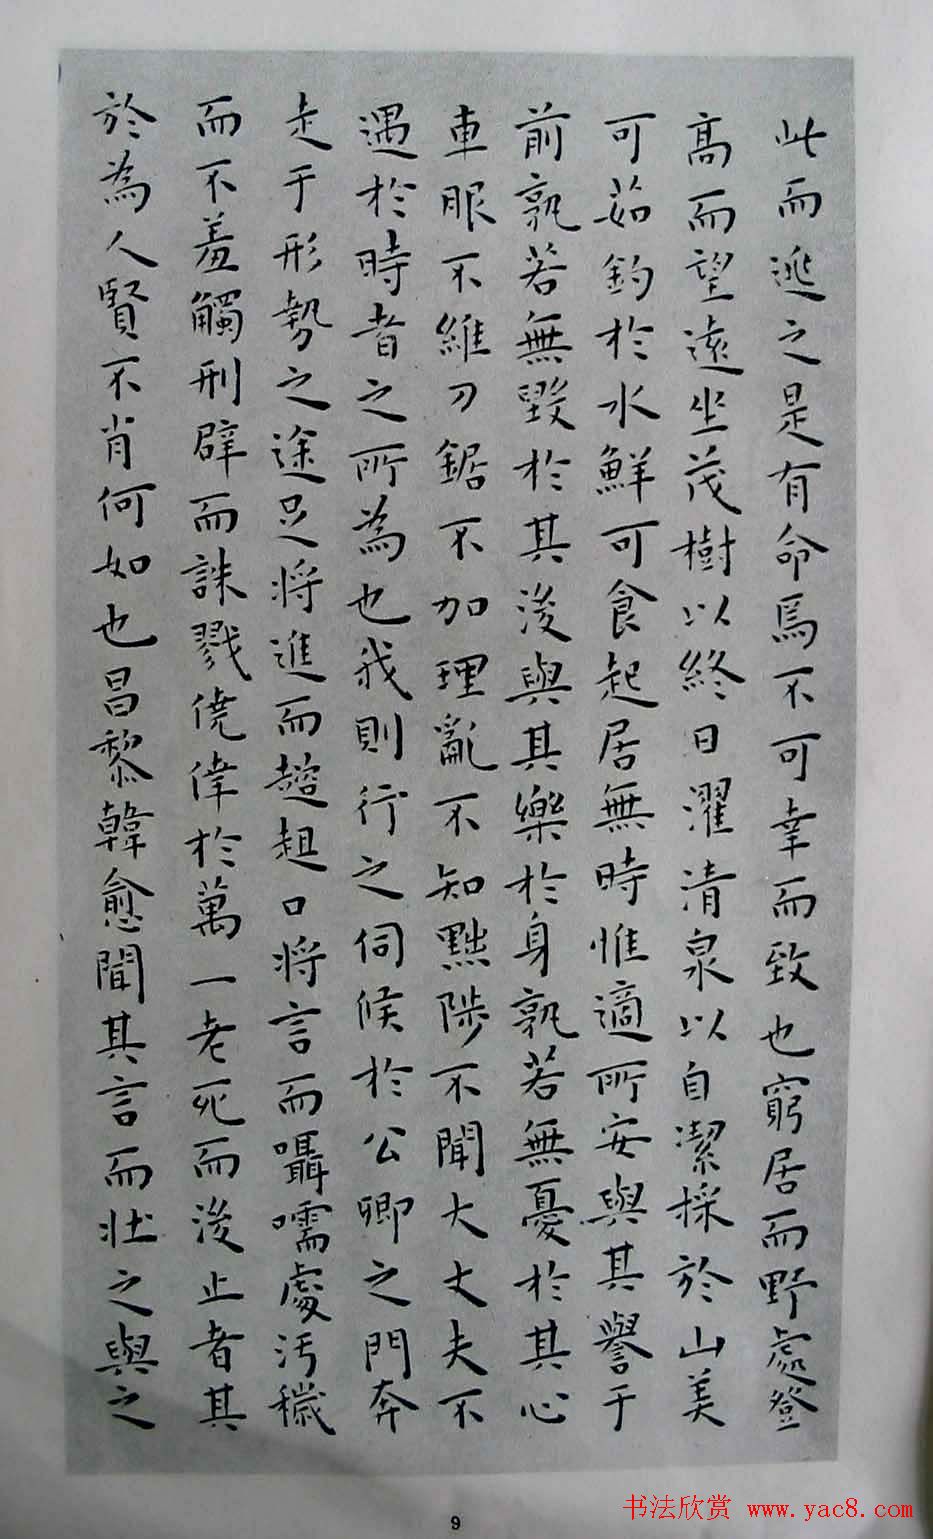 此而逃之是有命焉不可幸而致也窮居而野處登
高而望遠坐茂樹以終日濯清泉以自潔採於山美
可茹釣於水鮮可食起居無時惟適所安與其譽于
前孰若無毀於其後與其樂於身孰若無憂於其心
車服不維刀鋸不加理亂不知黜陟不聞大丈夫不
遇於時者之所為也我則行之伺候於公卿之門奔
走于形勢之途足將進而趑趄口將言而囁嚅處污穢
而不羞觸刑辟而誅戮僥倖於萬一老死而後止者其
於為人賢不肖何如也昌黎韓愈聞其言而壯之與之
书法欣赏 www.yac8.com
9